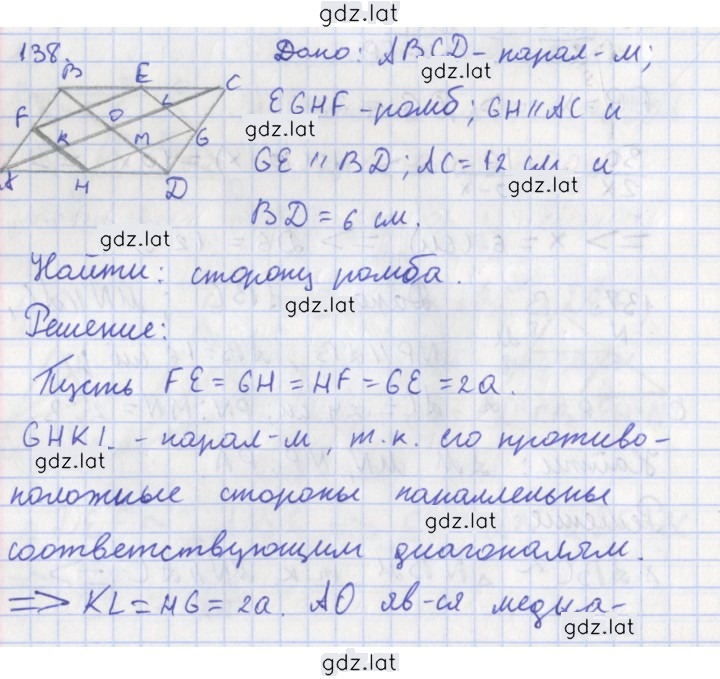 gdz.lat
138. Дано: ABCD - парал-м;
gdz.lat
B E C
F O L
K M G
A H D
EGHF - ромб; GH||AC и
gdz.lat
GE || BD; AC = 12 см и
gdz.lat
BD = 6 см.
gdz.lat
Найти: сторону ромба.
gdz.lat
Решение:
Пусть FE = GH = HF = GE = 2a.
GHKL - парал-м, т.к. его противо-
gdz.lat
положные стороны параллельны
gdz.lat
соответствующим диагоналям.
=> KL = HG = 2a. AO яв-ся медиа-
gdz.lat
gdz.lat